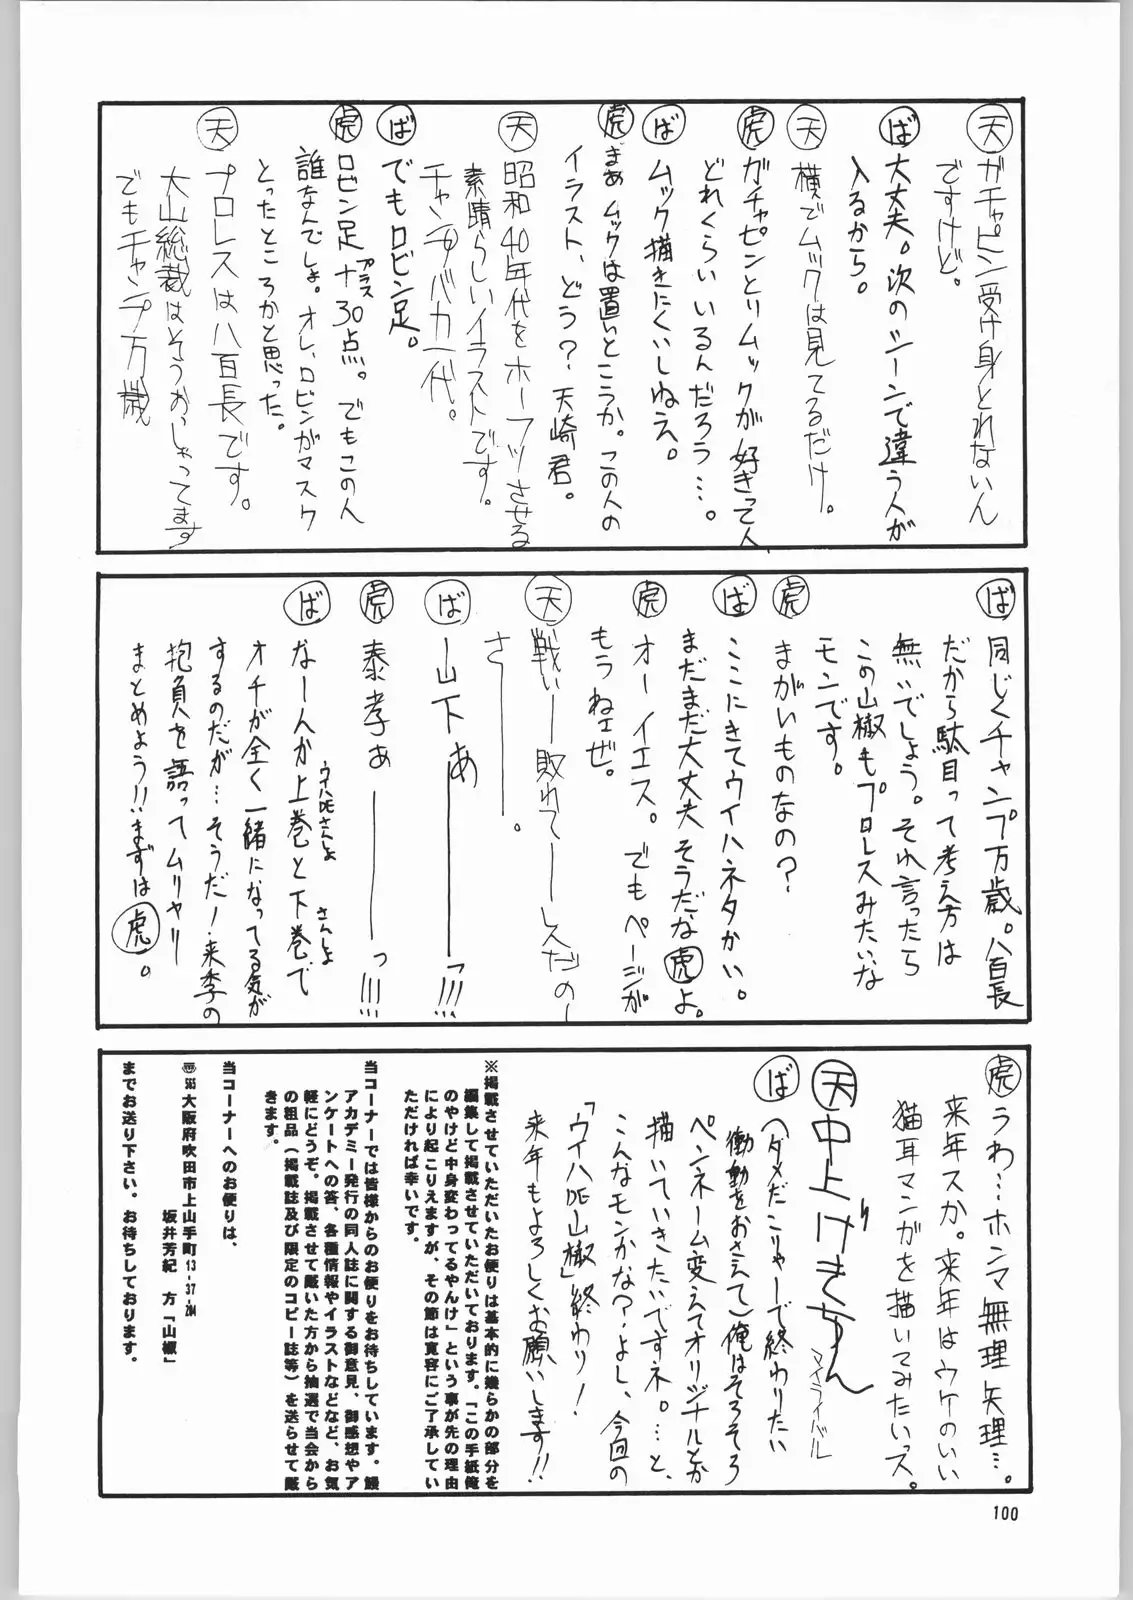 天 ガチャピン受け身とれないん
ですけど。
ば 大丈夫。次のシーンで違う人が
入るから。
天 横でムックは見てるだけ。
虎 ガチャピンとムックが好きって人
どれくらいいるんだろう…。
ば ムック描きたくいしねえ。
虎 まぁムックは置いとこうか。この人の
イラスト、どう?天崎君。
天 昭和40年代をホーフツさせる
素晴らしいイラストです。
チャンプバカ一代。
ば でもロビン足。
虎 ロビン足+プラス30点。でもこの人
誰なんでしょ。オレ、ロビンがマスク
とったところかと思った。
天 プロレスは八百長です。
大山総裁はそうおっしゃってます
でもチャンプ万歳
ば 同じくチャンプ万歳。八百長
だから駄目って考え方は
無いでしょう。それ言ったら
この山椒もプロレスみたいな
モンです。
虎 まがいものなの?
ば ここにきてウイハネタかい。
まだまだ大丈夫そうだな虎よ。
虎 オーイエス。でもページが
もうねェぜ。
天 戦いー敗れてー1人だのー
さ―――。
ば ー山下あ―――っ!!!
虎 泰孝ぁ―――っ!!!
ば なーんか上巻と下巻で
ウイハDEさんしょ さんしょ
オチが全く一緒になってる気が
するのだが…そうだ!来季の
抱負を語ってムリヤリ
まとめよう!!まずは虎。
虎 うわ…ホンマ無理矢理…。
来年スか。来年はウケのいい
猫耳マンガを描いてみたいっス。
天 中上げきちん
マイライバル
ば (ダメだこりゃーで終わりたい
衝動をおさえて)俺はそろそろ
ペンネーム変えてオリジナルとか
描いていきたいですネ。…と、
こんなモンかな?よし、今回の
「ウイハDE山椒」終わり!
来年もよろしくお願いします!!
※掲載させていただいたお便りは基本的に幾らかの部分を
編集して掲載させていただいております。「この手紙俺
のやけど中身変わってるやんけ」という事が先の理由
により起こりえますが、その節は寛容にご了承してい
ただければ幸いです。
当コーナーでは皆様からのお便りをお待ちしています。饅
アカデミー発行の同人誌に関する御意見、御感想やア
ンケートへの答、各種情報やイラストなどなど、お気
軽にどうぞ。掲載させて厳いた方から抽選で当会から
の粗品(掲載誌及び限定のコピー誌等)を送らせて厳
きます。
当コーナーへのお便りは、
〠565大阪府吹田市上山手町13-37-204
坂井芳紀 方「山椒」
までお送り下さい。お待ちしております。
100